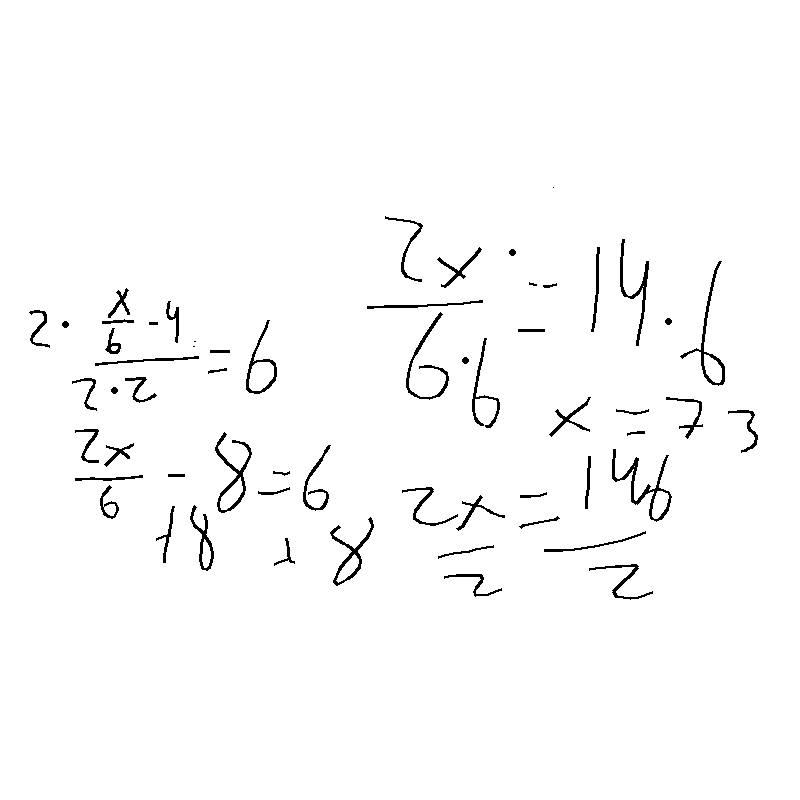 2 · (x/6 - 4)/(2 · 2) = 6
2x/6 - 8 = 6
+8 +8
2x/(6 · 6) · = 14 · 6
x = 73
2x/2 = 146/2